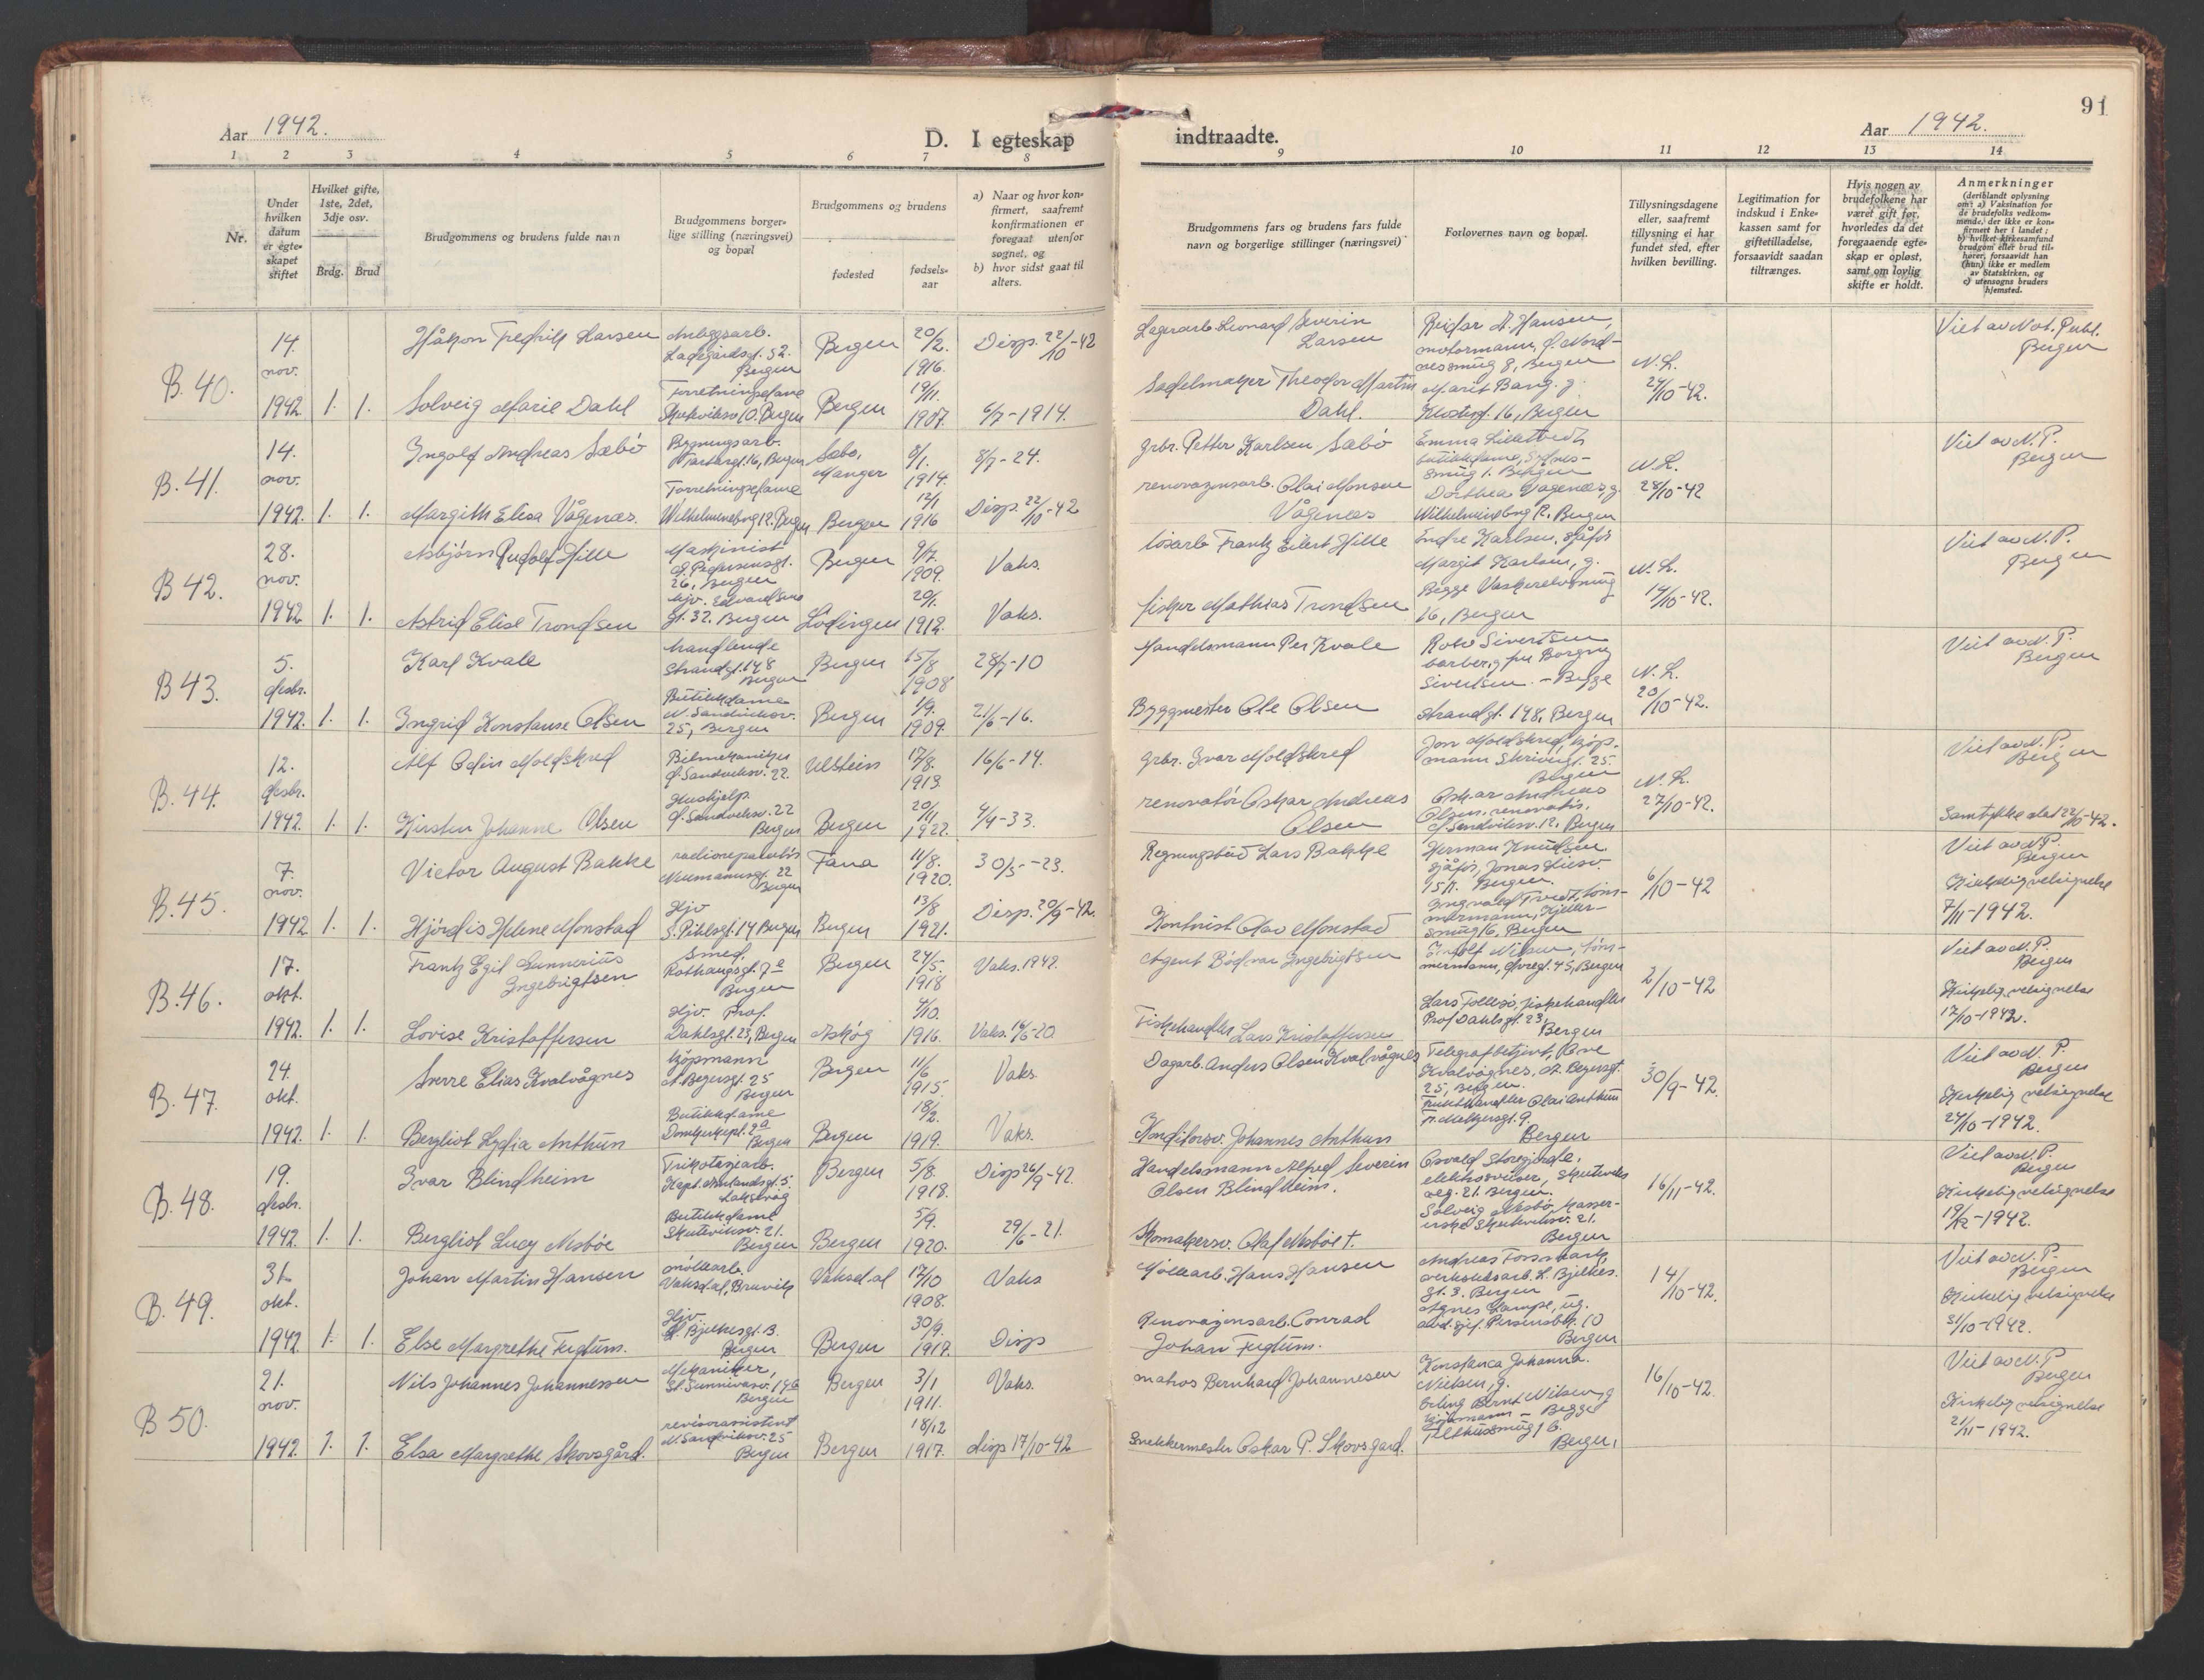 91
Aar 1942.
D. I egteskap indtraadte.
Aar 1942.
1 2 3 4 5 6 7 8 9 10 11 12 13 14
Nr.
Under hvilken datum er egte-skapet stiftet
Hvilket gifte, 1ste, 2det, 3dje osv.
Brdg. Brud
Brudgommens og brudens fulde navn
Brudgommens borger-lige stilling (næringsvei) og bopæl
Brudgommens og brudens
fødested
fødsels-aar
a) Naar og hvor kon-firmert, saafremt konfirmationen er foregaat utenfor sognet, og
b) hvor sidst gaat til alters.
Brudgommens fars og brudens fars fulde navn og borgerlige stillinger (næringsvei)
Forlovernes navn og bopæl.
Tillysningsdagene eller, saafremt tillysning ei har fundet sted, efter hvilken bevilling.
Legitimation for indskud i Enke-kassen samt for giftetilladelse, forsaavidt saadan tiltrænges.
Hvis nogen av brudefolkene har været gift før, hvorledes da det foregaaende egte-skap er opløst, samt om lovlig skifte er holdt.
Anmerkninger (deriblandt oplysning om: a) Vaksination for de brudefolks vedkom-mende, der ikke er kon-firmert her i landet; b) hvilket kirkesamfund brudgom eller brud til-hører, forsaavidt han (hun) ikke er medlem av Statskirken, og c) utensogns bruders hjemsted.
B. 40. 14. nov. 1942 1. 1.
Håkon Fredrik Larsen
Anleggsarb. Ladegårdsgt. 52. Bergen
Bergen 20/2. 1916. Disp. 22/10-42
Lagerarb. Leonard Severin Larsen
Reidar A. Hansen, motormann, Nord-nessmug 8, Bergen
Viet av Not. Publ. Bergen
Solveig Marie Dahl
Forretningsdame 10. Bergen
Bergen 19/11. 1907. 6/7-1914.
Sadelmaker Theodor Martin Dahl.
Marit Bang. g. Klosterg. 16, Bergen
N. L. 24/10-42.
B. 41. 14. nov. 1942. 1. 1.
Ingolf Andreas Sæbö
Bygningsarb. 16, Bergen
Sæbø, Manger 8/1. 1914. 8/7-24.
grbr. Petter Karlsen Sæbö
Emma butikkdame, smug 1. Bergen
Viet av N. P. Bergen
Margith Elisa Vågenæs.
Forretningsdame Wilhelmineborg 12. Bergen
Bergen 12/1 1916 Disp. 22/10-42
renovasjonsarb. Olai Monsen Vågenæs
Dorthea Vågenæs, g. Wilhelmineborg 12. Bergen
N. L. 28/10-42
B 42. 28. nov. 1942 1. 1.
Asbjörn Rudolf Hille
Maskinist Pedersensgt. 26, Bergen
Bergen 9/7. 1909. Vaks.
løsarb Frantz Eilert Hille
Endre Karlsen, sjåfør Margit Karlsen, g. Begge Vaskerelvsmug 16, Bergen
Viet av N. P. Bergen
Astrid Elise Trondsen
hjv. Edvardsens gt. 32. Bergen
Lödingen 20/1. 1912. Vaks.
fisker Mathias Trondsen
N. L. 14/10-42.
B 43. 5. desbr. 1942. 1. 1.
Karl Kvale
handlende Strandgt. 148 Bergen
Bergen 15/8 1908 28/7-10
Handelsmann Per Kvale
Sivertsen barber, g fru Borgny Sivertsen. - Begge Strandgt. 148, Bergen
Viet av N. P. Bergen
Ingrid Konstanse Olsen
Butikkdame N. Sandviksv. 25, Bergen
Bergen 1/9. 1909. 21/6-16.
Byggmester Ole Olsen
N. L. 20/10-42.
B. 44. 12. desbr. 1942. 1. 1.
Alf Odin Moldskred
Bilmekaniker Sandviksv. 22.
Ulstein 17/8. 1913. 16/6-14.
grbr. Ivar Moldskred
Jon Moldskred, kjøp-mann Skriverg. 25. Bergen
Viet av N. P. Bergen
Kirsten Johanne Olsen
Hushjelp. Sandviksv. 22 Bergen
Bergen 20/11 1922. 4/9-33.
renovatör Oskar Andreas Olsen
Oskar Andreas Olsen, renovatör. Sandviksv. 12. Bergen
N. L. 27/10-42.
Samtykke dat 22/10-42.
B. 45. 7. nov. 1942 1. 1.
Victor August Bakke
radioreparatör Neumannsgt. 22 Bergen
Fana 11/8. 1920. 30/5--23.
Regningsbud Lars Bakke
Herman Knudsen sjåfør, Jonas Liesv. Bergen.
Viet av N. P. Bergen
Hjördis Helene Monstad
Hjv S. Pihlsgt. 14 Bergen
Bergen 13/8 1921. Disp. 20/9-42.
Kontorist Olav Monstad
Ingvald Tvedt, tøm-mermann, smug 6, Bergen
6/10-42
Kirkelig velsignelse 7/11-1942.
B. 46. 17. okt. 1942. 1. 1.
Frantz Egil Gunnerius Ingebrigtsen
Smed, Rothaugsgt. 7 e Bergen
Bergen 24/5. 1918 Vaks. 1942.
Agent Bödvar Ingebrigtsen
Nilsen, töm-mermann, 45, Bergen
Viet av N. P. Bergen
Lovise Kristoffersen
Hjv. Prof. Dahlsgt. 23, Bergen
Askøy 4/10. 1916. Vaks. 16/6-20
Fiskehandler Lars Kristoffersen
Lars Follesø, fiskehandler Prof Dahlsgt. 23, Bergen
2/10-42
Kirkelig velsignelse 17/10-1942.
B. 47. 24. okt. 1942. 1. 1.
Sverre Elias Kvalvågnes
kjøpmann A. Beyersgt. 25 Bergen
Bergen 11/6 1915. Vaks.
Dagarb. Anders Olsen Kvalvågnes
Telegrafbetjent, Kvalvågnes, A. Beyersgt. 25, Bergen.
Viet av N. P. Bergen
Bergliot Lydia Anthun
Butikkdame Domkirkepl. 2a Bergen
Bergen 18/2. 1919. Vaks.
Konditorsv. Johannes Anthun
Frukthandler Olai Anthun Fr. Meltzersgt. 9. Bergen
30/9-42.
Kirkelig velsignelse 24/10-1942.
B. 48. 19. desbr. 1942. 1. 1.
Ivar Blindheim
Trikotasjearb. Kapt. Amlandsgt. 5. Laksevåg
Bergen 5/8. 1918. Disp 26/9-42.
Handelsmann Alfred Severin Olsen Blindheim.
Osvald Storesjerde, elektrosveiser, Skuteviks veg. 21. Bergen.
Viet av N. P. Bergen
Bergliot Lucy Mesböe
Butikkdame Skuteviksv. 21. Bergen
Bergen 5/9. 1920. 29/6-21.
Skomakersv. Olaf Mesböe †.
Solveig Mesbö, kasser-erske Skuteviksv. 21. Bergen
16/11-42.
Kirkelig velsignelse 19/12-1942.
B. 49. 31. okt. 1942. 1. 1.
Johan Martin Hansen
möllearb. Vaksdal, Bruvik
Vaksdal 17/10 1908. Vaks
Möllearb. Hans Hansen
Andreas Fossmark, verkstedsarb. H. Bjelkes. gt. 3. Bergen
Viet av N. P. Bergen
Else Margrethe Fuglum.
Hjv. Bjelkesgt. 3. Bergen
Bergen 30/9. 1917. Disp
Renovasjonsarb. Conrad Johan Fuglum.
Agnes Lampe, ug. 10 Bergen
14/10-42.
Kirkelig velsignelse 31/10-1942.
B 50. 21. nov. 1942. 1. 1.
Nils Johannes Johannessen
Mekaniker, St. Sunnivasv. Bergen
Bergen 3/1 1911. Vaks.
matros Bernhard Johannesen
Konstanca Johanna. Nielsen, g. Erling Bernt Nilsen, g kjöpmann - Begge Tilthussmug 1 b. Bergen,
Viet av N. P Bergen
Elsa Margrethe Skovsgård.
revisorassistent N. Sandviksv. 25 Bergen
Bergen 18/12 1917. disp 17/10-42
Snekkermester Oskar P. Skovsgard.
16/10-42.
Kirkelig velsignelse 21/11-1942.